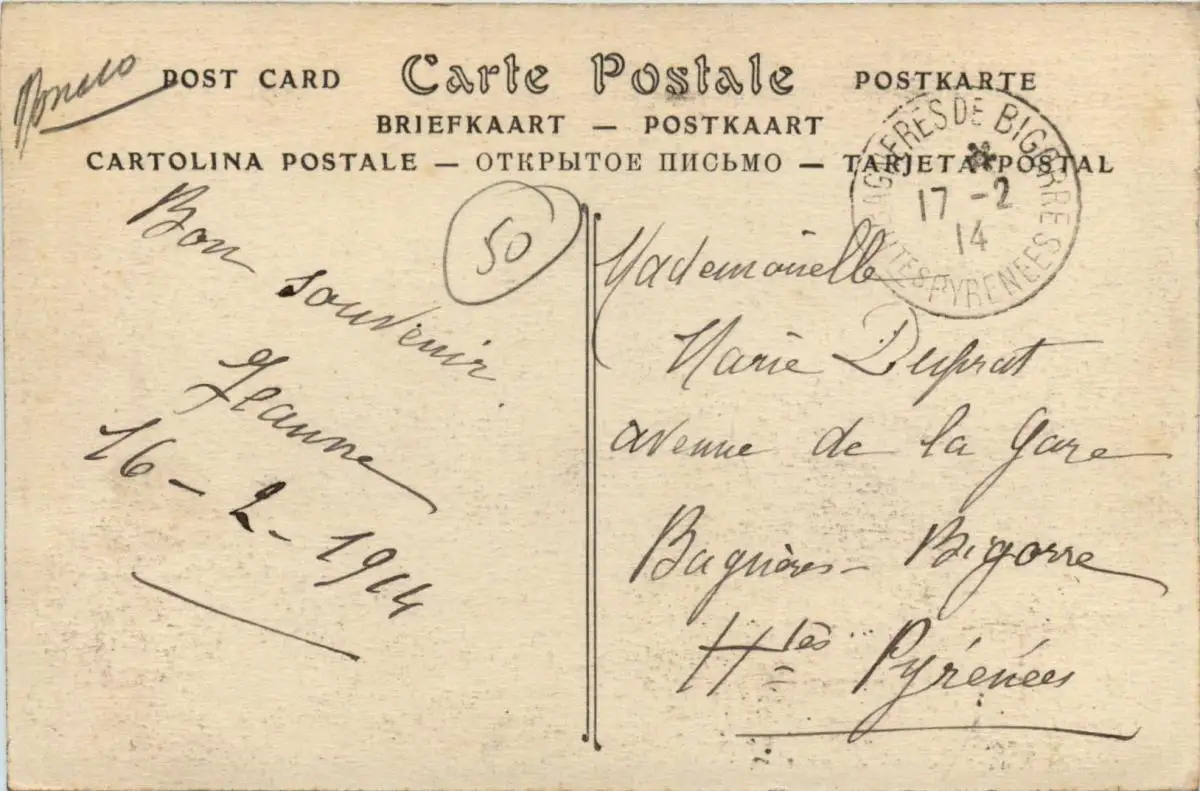 Monaco
POST CARD Carte Postale POSTKARTE
BRIEFKAART — POSTKAART
CARTOLINA POSTALE — ОТКРЫТОЕ ПИСЬМО — TARJETA POSTAL
BAGNERES DE BIGORRE
17 - 2
14
HTES PYRENEES
50
Bon
souvenir
Jeanne
16-2-1914
Mademoiselle
Marie Duprat
avenue de la Gare
Bagnères-Bigorre
Htes Pyrénées